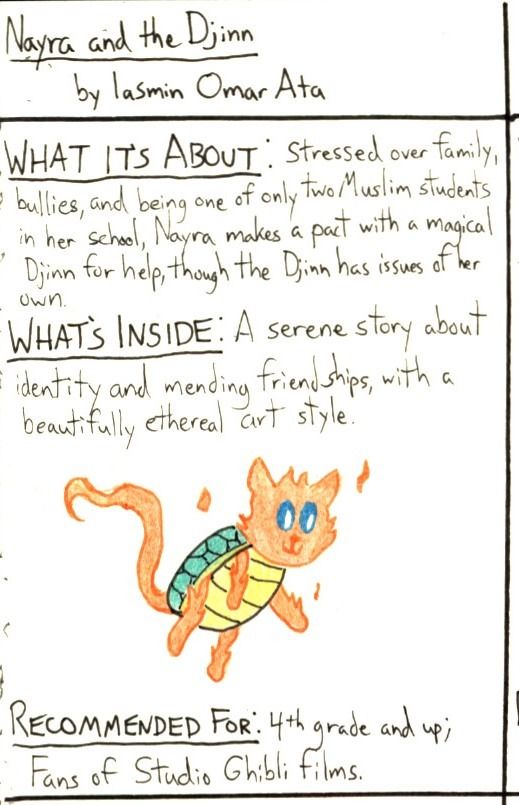 Nayra and the Djinn
by Iasmin Omar Ata
WHAT IT'S ABOUT: Stressed over family,
bullies, and being one of only two Muslim students
in her school, Nayra makes a pact with a magical
Djinn for help, though the Djinn has issues of her
own.
WHAT'S INSIDE: A serene story about
identity and mending friendships, with a
beautifully ethereal art style.
RECOMMENDED FOR: 4th grade and up;
Fans of Studio Ghibli films.